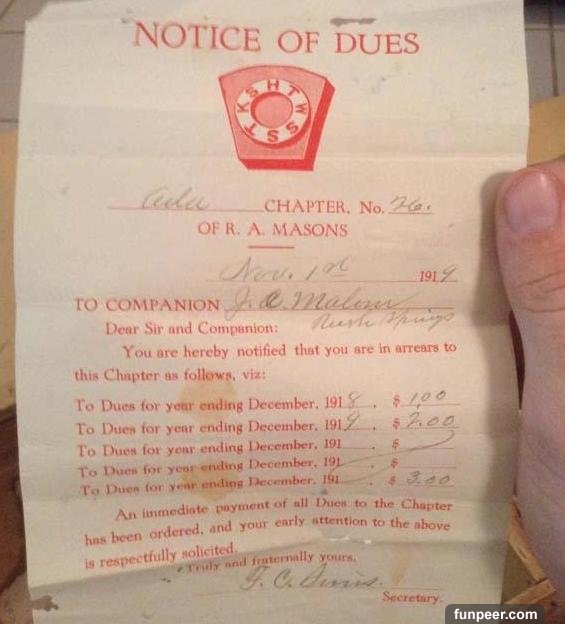 NOTICE OF DUES
H T W S S T K S
CHAPTER, No. 26.
OF R. A. MASONS
Nov. 1st 1919
TO COMPANION J. A.
Rush Springs
Dear Sir and Companion:
You are hereby notified that you are in arrears to
this Chapter as follows, viz:
To Dues for year ending December, 1918. $ 1.00
To Dues for year ending December, 1919. $ 2.00
To Dues for year ending December, 191 . $
To Dues for year ending December, 191 . $
To Dues for year ending December, 191 . $ 3.00
An immediate payment of all Dues to the Chapter
has been ordered, and your early attention to the above
is respectfully solicited.
Truly and fraternally yours,
Secretary.
funpeer.com